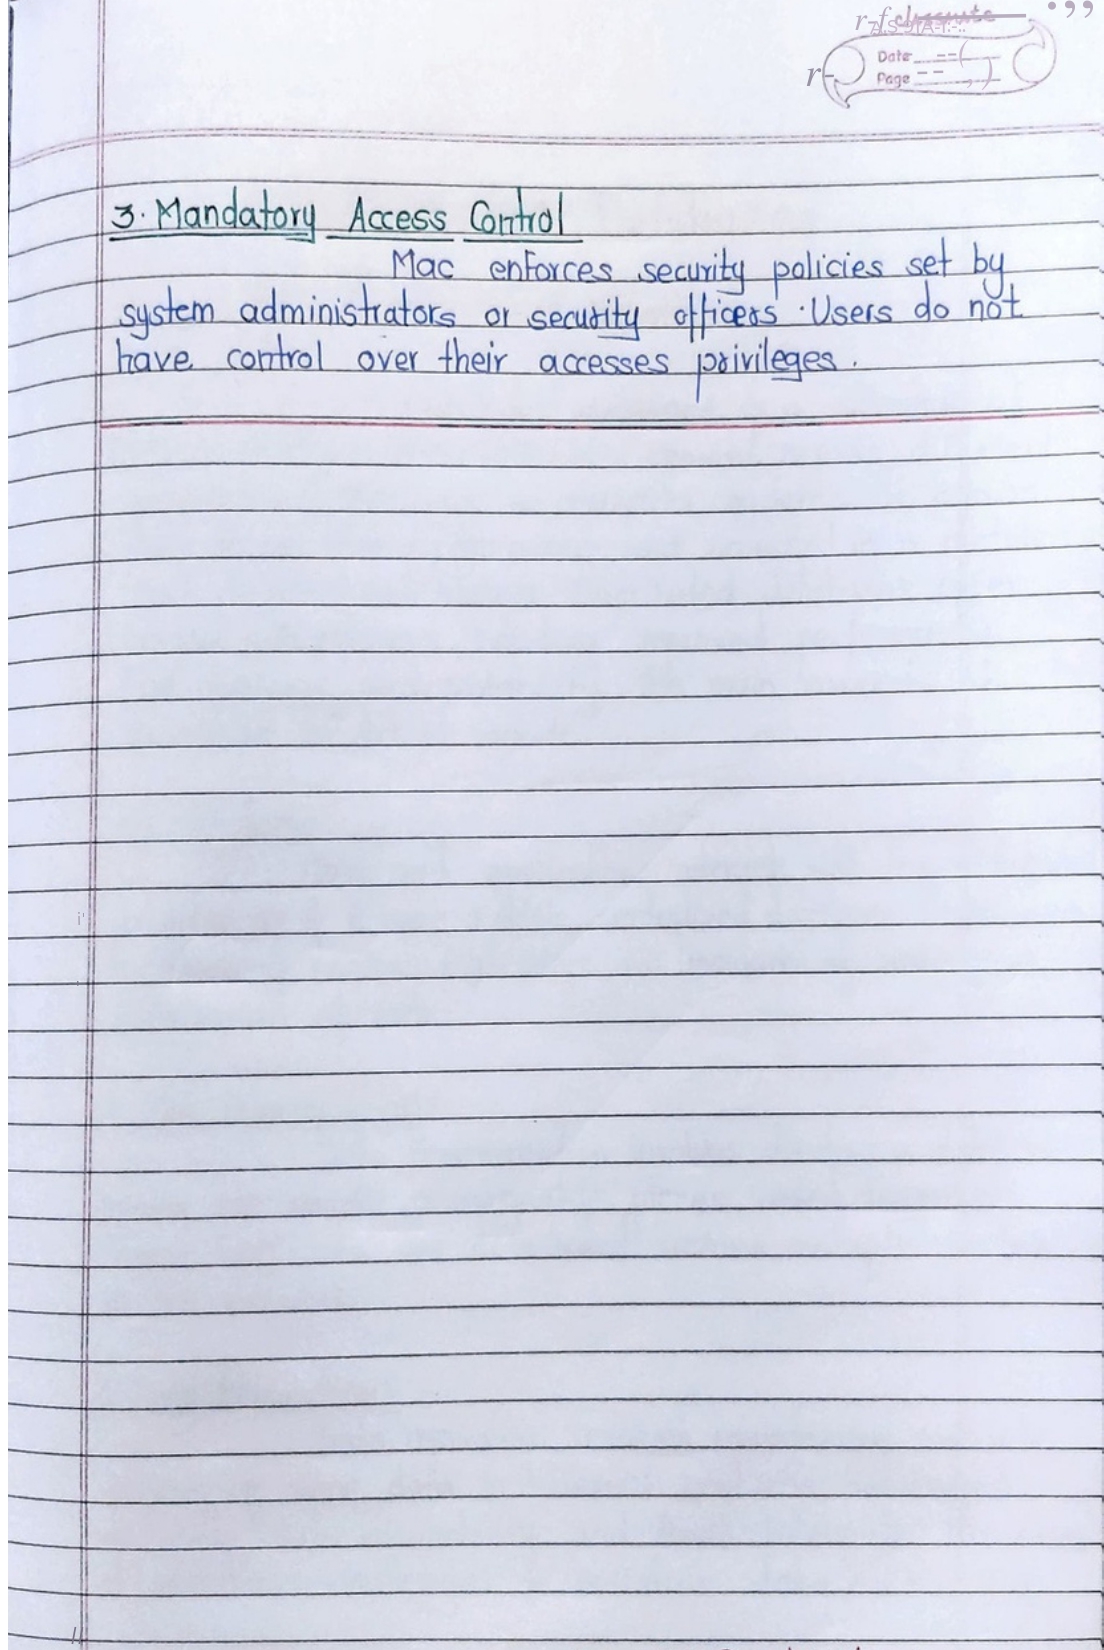 Date
Page
3. Mandatory Access Control
Mac enforces security policies set by
system administrators or security officers. Users do not
have control over their accesses privileges.